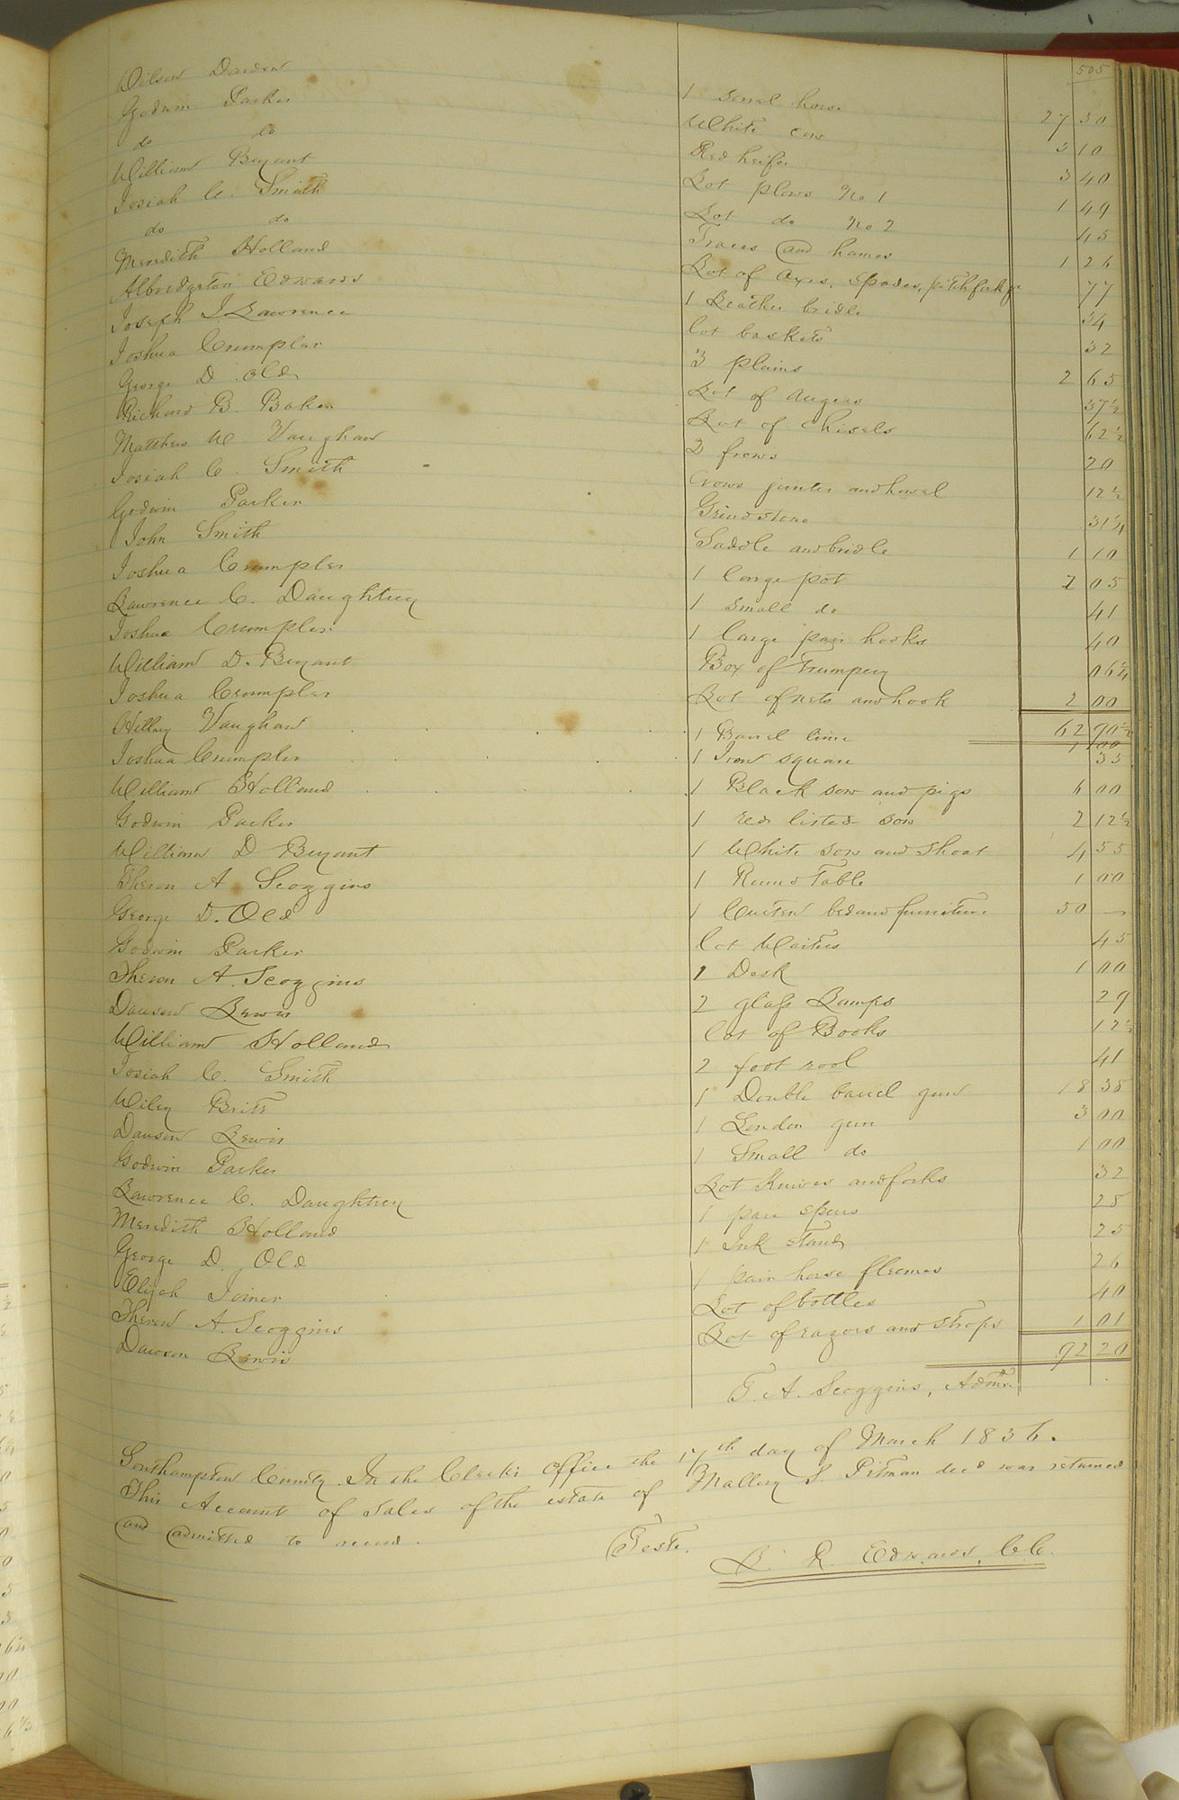 505
Wilson Darden 1 sorrel horse 27 50
Godwin Parker White cow 5 10
do do Red heifer 3 40
William Bryant Lot plows No 1 1 49
Josiah C. Smith Lot do No 2 45
do do Traces and hames 1 26
Meredith Holland Lot of axes, spades, pitchfork &c 77
Albridgeton Edwards 1 Leather bridle 34
Joseph J Lawrence lot baskets 32
Joshua Crumpler 3 plains 2 65
George D Old Lot of Augers 37½
Richard B. Baker Lot of chisels 62½
Matthew W Vaughan 2 frows 20
Josiah C. Smith Crows jointer and howel 12½
Godwin Parker Grind stone 31¼
John Smith Saddle and bridle 1 10
Joshua Crumpler 1 large pot 2 05
Lawrence C. Daughtrey 1 small do 41
Joshua Crumpler 1 large pair hooks 40
William D. Bryant Box of Trumpery 06¼
Joshua Crumpler Lot of nets and hook 2 00
62 90½
Hillary Vaughan 1 Barrel lime 1 00
Joshua Crumpler 1 Iron square 35
William Holland 1 Black sow and pigs 6 00
Godwin Parker 1 red listed sow 2 12½
William D Bryant 1 White sow and shoat 4 55
Theron A Scoggins 1 Round Table 1 00
George D. Old 1 Curten bed and furniture 50 —
Godwin Parker lot Waiters 45
Theron A. Scoggins 1 Desk 1 00
Dawson Lewis 2 glass Lamps 29
William Holland lot of Books 12½
Josiah C. Smith 2 foot rool 41
Wiley Britt 1 Double barrel gun 18 35
Dawson Lewis 1 London gun 3 00
Godwin Parker 1 Small do 1 00
Lawrence C. Daughtrey Lot Knives and forks 32
Meredith Holland 1 pair spurs 25
George D. Old 1 Ink stand 25
Elijah Joiner 1 pair horse fleemes 26
Theron A. Scoggins Lot of bottles 40
Dawson Lewis Lot of razors and strops 1 01
92 20
T. A. Scoggins, Admr.
Southampton County. In the Clerk's office the 17th day of March 1836.
This Account of Sales of the estate of Mallery S. Pitman decd was returned
and admitted to record.
Teste.
L. R. Edwards, C.C.